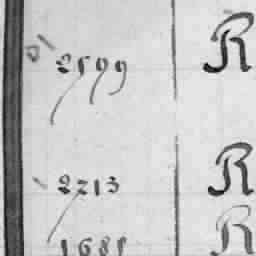 2599 R
2213 R
1685 R